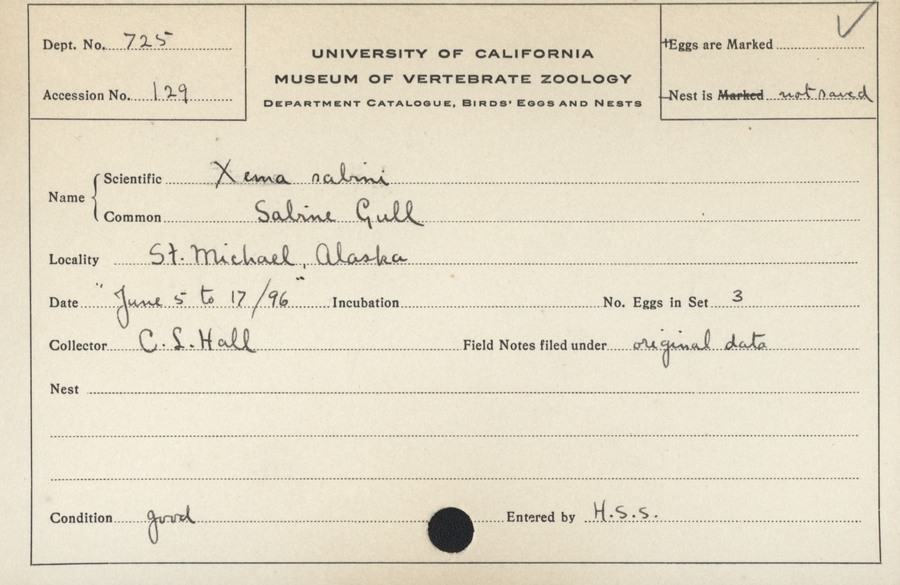 Dept. No. 725
Accession No. 129
UNIVERSITY OF CALIFORNIA
MUSEUM OF VERTEBRATE ZOOLOGY
DEPARTMENT CATALOGUE, BIRDS' EGGS AND NESTS
Eggs are Marked ✓
Nest is Marked not saved
Name
Scientific Xema sabini
Common Sabine Gull
Locality St. Michael, Alaska
Date "June 5 to 17/96" Incubation No. Eggs in Set 3
Collector C. L. Hall Field Notes filed under original data
Nest
Condition good Entered by H.S.S.